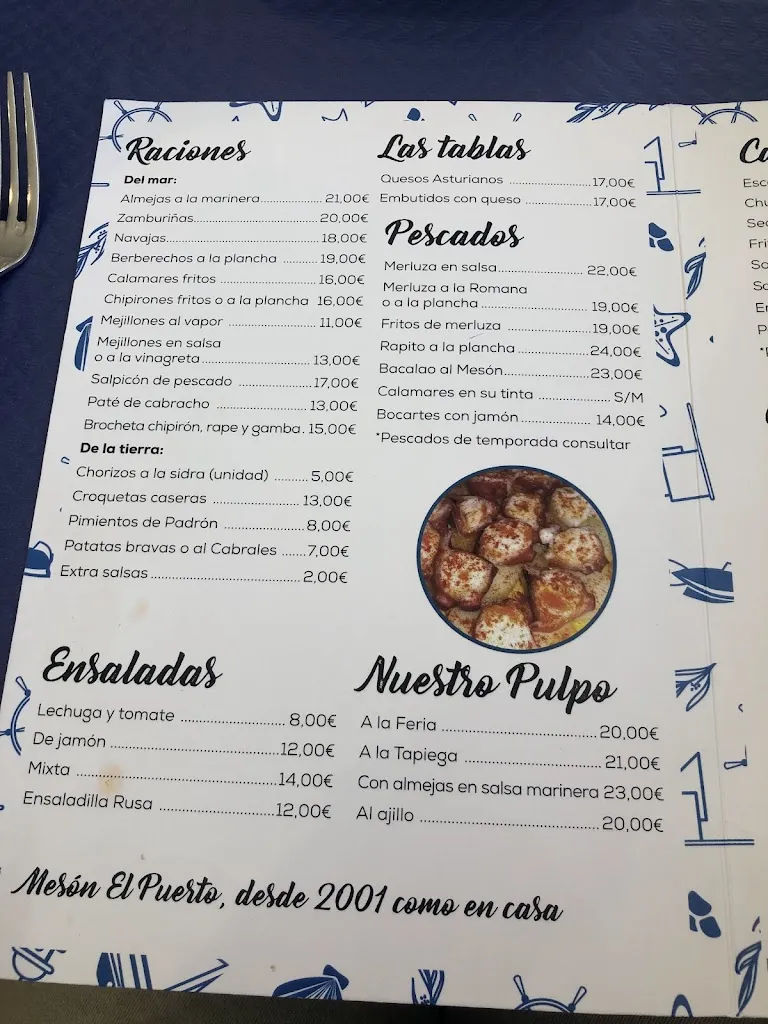 Raciones
Del mar:
Almejas a la marinera.................... 21,00€
Zamburiñas.................................... 20,00€
Navajas........................................... 18,00€
Berberechos a la plancha .......... 19,00€
Calamares fritos ........................... 16,00€
Chipirones fritos o a la plancha 16,00€
Mejillones al vapor ........................ 11,00€
Mejillones en salsa
o a la vinagreta.............................. 13,00€
Salpicón de pescado ................... 17,00€
Paté de cabracho ........................ 13,00€
Brocheta chipirón, rape y gamba. 15,00€
De la tierra:
Chorizos a la sidra (unidad) ......... 5,00€
Croquetas caseras ........................ 13,00€
Pimientos de Padrón .................... 8,00€
Patatas bravas o al Cabrales ...... 7,00€
Extra salsas..................................... 2,00€
Ensaladas
Lechuga y tomate .......................... 8,00€
De jamón ........................................ 12,00€
Mixta ................................................ 14,00€
Ensaladilla Rusa ............................. 12,00€
Las tablas
Quesos Asturianos ..................... 17,00€
Embutidos con queso .................. 17,00€
Pescados
Merluza en salsa...................... 22,00€
Merluza a la Romana
o a la plancha ............................ 19,00€
Fritos de merluza ....................... 19,00€
Rapito a la plancha ................... 24,00€
Bacalao al Mesón...................... 23,00€
Calamares en su tinta .................. S/M
Bocartes con jamón................... 14,00€
*Pescados de temporada consultar
Nuestro Pulpo
A la Feria ...................................... 20,00€
A la Tapiega ................................. 21,00€
Con almejas en salsa marinera 23,00€
Al ajillo ............................................ 20,00€
Mesón El Puerto, desde 2001 como en casa